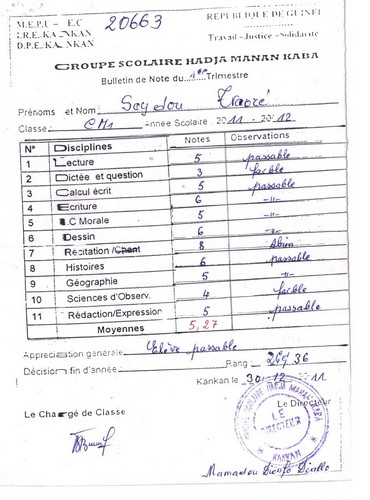 M.E.P.U - E.C
I.R.E. KANKAN
D.P.E. KANKAN
20663
REPUBLIQUE DE GUINEE
Travail - Justice - Solidarité
GROUPE SCOLAIRE HADJA MANAN KABA
Bulletin de Note du 1er Trimestre
Prénoms et Nom: Seydou Traoré
Classe: CM1 Année Scolaire 2011 - 2012
N° Disciplines Notes Observations
1 Lecture 5 passable
2 Dictée et question 3 faible
3 Calcul écrit 5 passable
4 Ecriture 6 -//-
5 I.C Morale 5 -//-
6 Dessin 6 -//-
7 Récitation /Chant 8 A.bien
8 Histoires 6 passable
9 Géographie 5 -//-
10 Sciences d'Observ. 4 faible
11 Rédaction/Expression 5 passable
Moyennes 5,27
Appréciation générale Elève passable
Décision fin d'année Rang 36
Kankan le 30-12-11
Le Chargé de Classe
Le Directeur
GROUPE SCOLAIRE HADJA MANAN KABA
LE
DIRECTEUR
KANKAN
Mamadou Diallo